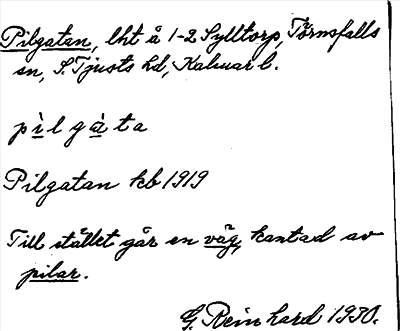 Pilgatan, lht å 1-2 Sylltorp, Törnsfalls
sn, S. Tjusts hd, Kalmar l.
pìlgàta
Pilgatan kb 1919
Till stället går en väg, kantad av
pilar.
G. Reinhard 1930.